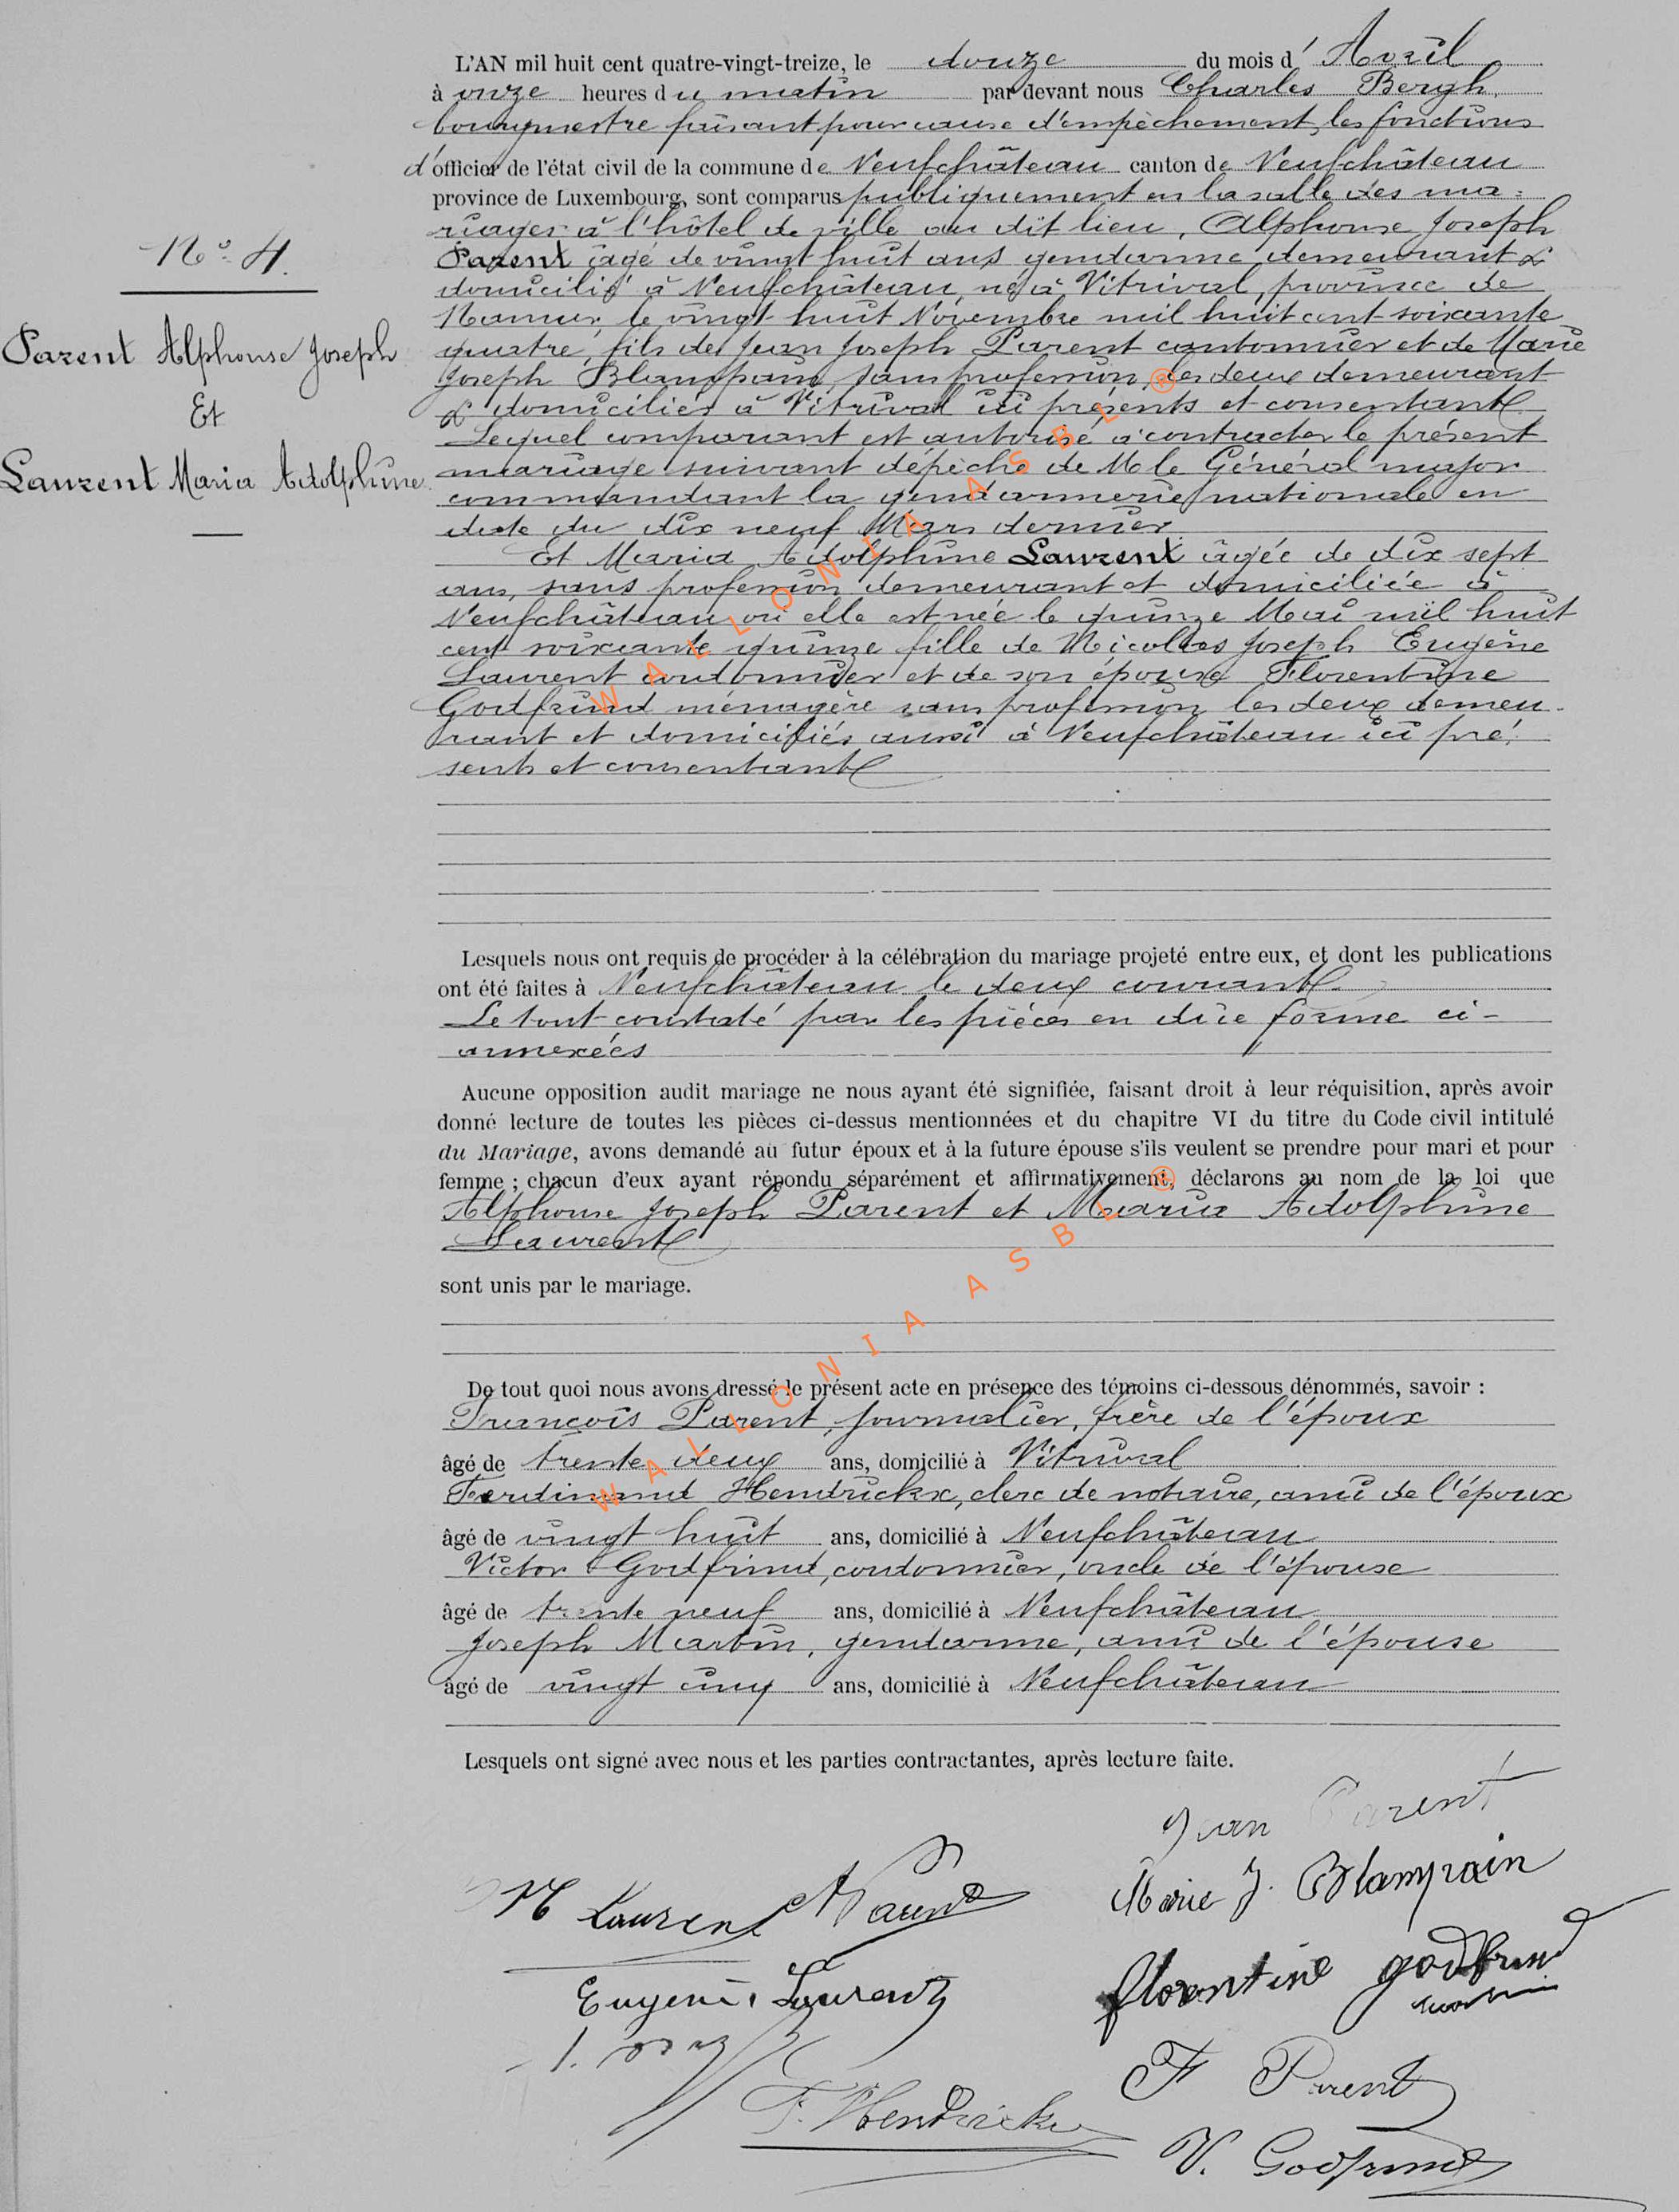 L'AN mil huit cent quatre-vingt-treize, le douze du mois d'Avril
à onze heures du matin par devant nous Charles Bergh,
bourgmestre faisant pour cause d'empêchement les fonctions
d'officier de l'état civil de la commune de Neufchâteau canton de Neufchâteau
province de Luxembourg, sont comparus publiquement en la salle des ma=
riages à l'hôtel de ville au dit lieu, Alphonse Joseph
Parent âgé de vingt huit ans gendarme demeurant &
domicilié à Neufchâteau, né à Vitrival, province de
Namur, le vingt huit Novembre mil huit cent soixante
quatre, fils de Jean Joseph Parent cantonnier et de Marie
Joseph Blampain, sans profession, les deux demeurant
& domiciliés à Vitrival ici présents et consentants
Lequel comparant est autorisé à contracter le présent
mariage suivant dépêche de M le Général major
commandant la gendarmerie nationale en
date du dix neuf Mars dernier.
Et Maria Adolphine Laurent âgée de dix sept
ans, sans profession demeurant et domiciliée à
Neufchâteau où elle est née le quinze Mai mil huit
cent soixante quinze fille de Nicolas Joseph Eugène
Laurent cordonnier et de son épouse Florentine
Godfrind ménagère sans profession les deux demeu-
rant et domiciliés aussi à Neufchâteau ici pré-
sents et consentants
N° 4.
Parent Alphonse Joseph
Et
Laurent Maria Adolphine
Lesquels nous ont requis de procéder à la célébration du mariage projeté entre eux, et dont les publications
ont été faites à Neufchâteau le deux courant.
Le tout constaté par les pièces en due forme ci-
annexées
Aucune opposition audit mariage ne nous ayant été signifiée, faisant droit à leur réquisition, après avoir
donné lecture de toutes les pièces ci-dessus mentionnées et du chapitre VI du titre du Code civil intitulé
du Mariage, avons demandé au futur époux et à la future épouse s'ils veulent se prendre pour mari et pour
femme ; chacun d'eux ayant répondu séparément et affirmativement, déclarons au nom de la loi que
Alphonse Joseph Parent et Maria Adolphine
Laurent
sont unis par le mariage.
De tout quoi nous avons dressé le présent acte en présence des témoins ci-dessous dénommés, savoir :
François Parent, journalier, frère de l'époux
âgé de trente deux ans, domicilié à Vitrival
Ferdinand Hendrickx, clerc de notaire, ami de l'époux
âgé de vingt huit ans, domicilié à Neufchâteau
Victor Godfrind, cordonnier, oncle de l'épouse
âgé de trente neuf ans, domicilié à Neufchâteau
Joseph Martin, gendarme, ami de l'épouse
âgé de vingt cinq ans, domicilié à Neufchâteau
Lesquels ont signé avec nous et les parties contractantes, après lecture faite.
Jean Parent
M Laurent A Parent
Marie J. Blampain
Eugène Laurent
florentine godfrind
F Parent
F. Hendrickx
V. Godfrind
WALLONIA ASBL ®
WALLONIA ASBL ®